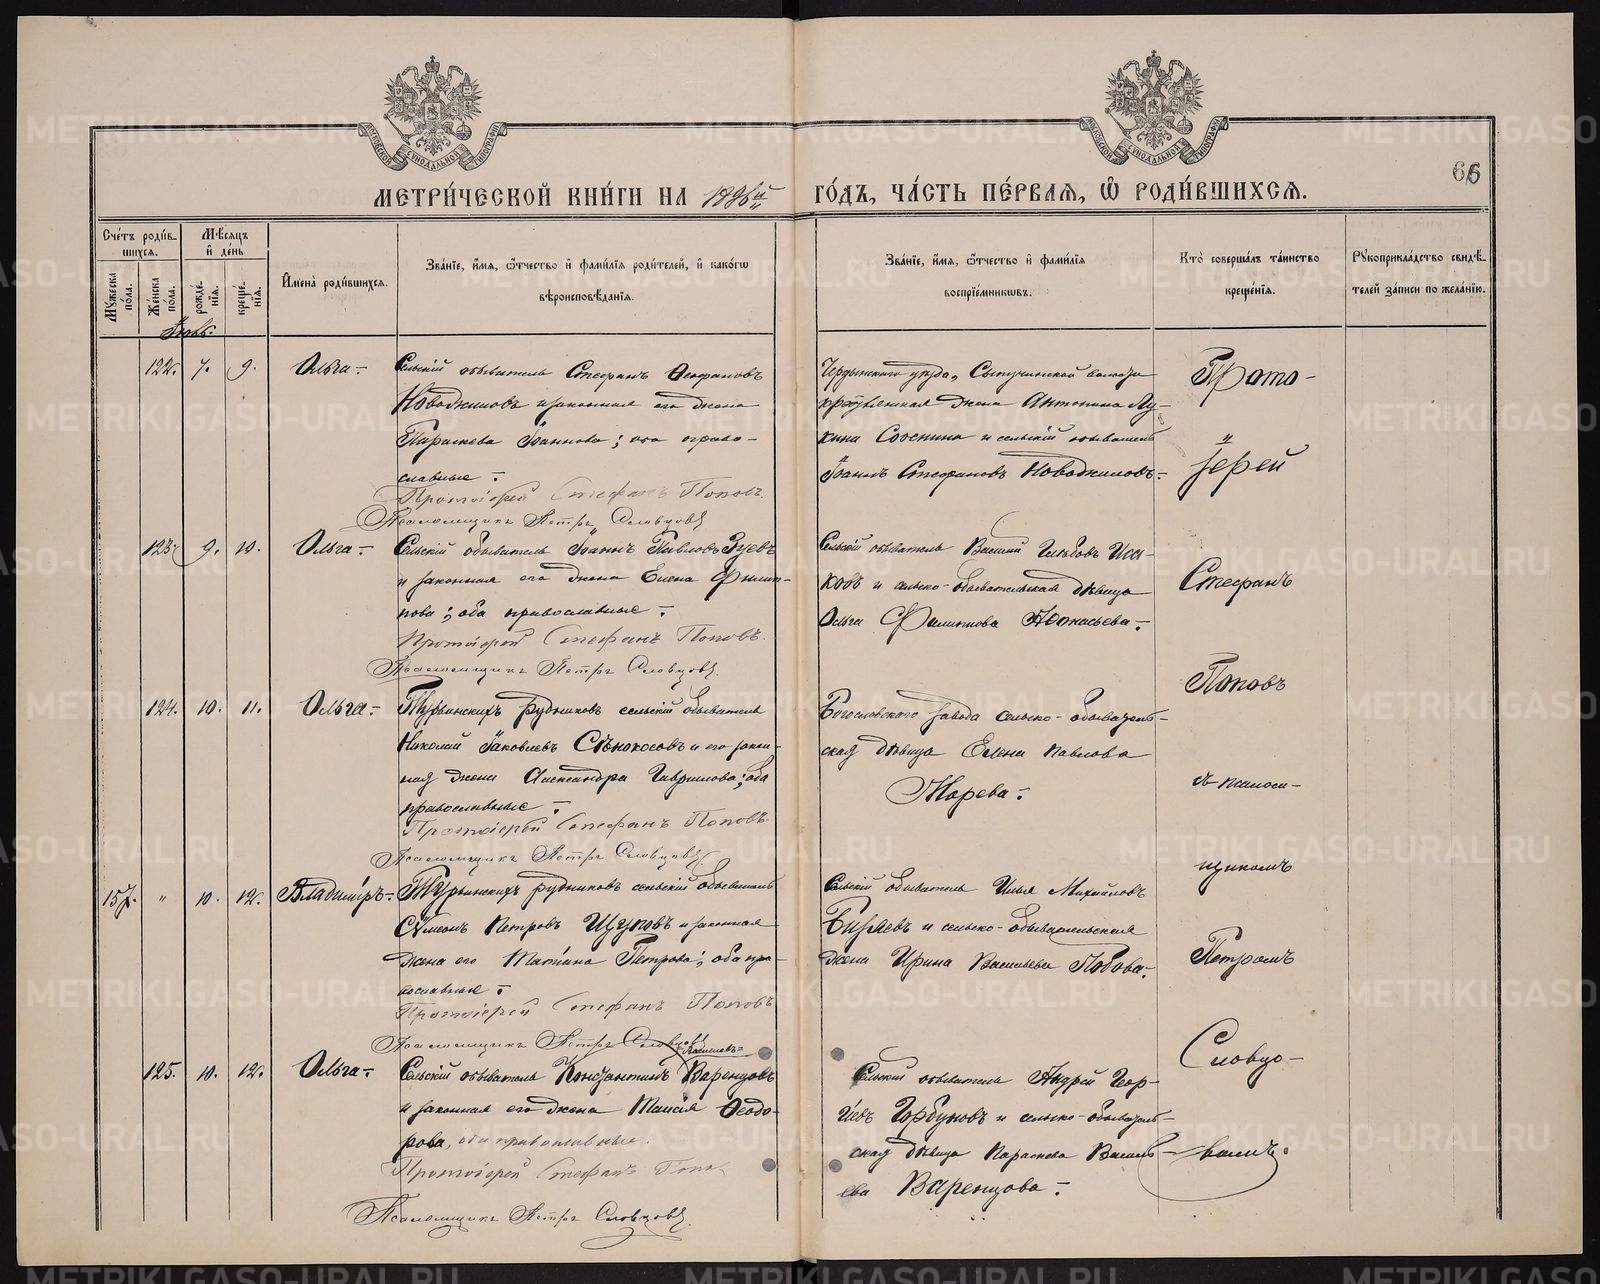 66
МЕТРИ́ЧЕСКОЙ КНИ́ГИ НА 1896й
ГО́ДЪ, ЧА́СТЬ ПЕ́РВАЯ, Ѽ РОДИ́ВШИХСЯ.
МОСКОВСКОЙ СѴНОДАЛЬНОЙ ТИПОГРАФІИ
МОСКОВСКОЙ СѴНОДАЛЬНОЙ ТИПОГРАФІИ
Сче́тъ роди́вшихся.
Мѣ́сяцъ и҆ де́нь
Мꙋ́жеска по́ла.
Же́нска по́ла.
рожде́нїя.
креще́нїя.
И҆мена̀ роди́вшихся.
Зва́нїе, и҆́мя, ѻ҆́тчество и҆ фамилїя роди́телей, и҆ како́гѡ
вѣроисповѣ́данїя.
Зва́нїе, и҆́мя, ѻ҆́тчество и҆ фами́лїя
воспрїе́мникѡвъ.
Кто̀ соверша́лъ та́инство
креще́нїя.
Рꙋкоприкла́дство свидѣ́-
телей за́писи по жела́нїю.
Іюль.
122. 7. 9. Ольга
Сельскій обыватель Стефанъ Ѳеофановъ
Новожиловъ и законная его жена
Параскева Іоаннова; оба право-
славные.
Протоіерей Стефанъ Поповъ
Псаломщикъ Петръ Словцовъ
Чердынскаго уѣзда, волости
крестьянская жена Антонина Лу-
кина Соснина и сельскій обыватель
Іоаннъ Стефановъ Новожиловъ.
Прото-
іерей
123. 9. 10. Ольга
Сельскій обыватель Іоаннъ Павловъ Зуевъ
и законная его жена Елена Филип-
пова; оба православные.
Протоіерей Стефанъ Поповъ.
Псаломщикъ Петръ Словцовъ.
Сельскій обыватель Василій Глѣбовъ Иса-
ковъ и сельско-обывательская дѣвица
Ольга Филиппова Аѳонасьева.
Стефанъ
Поповъ
124. 10. 11. Ольга
Турьинскихъ рудниковъ сельскій обыватель
Николай Іаковлевъ Сѣнокосовъ и его закон-
ная жена Александра Гаврилова; оба
православные.
Протоіерей Стефанъ Поповъ
Псаломщикъ Петръ Словцовъ
Богословского завода сельско-обыватель-
ская дѣвица Елена Павлова
Жарева.
съ псалом-
щикомъ
157. " 10. 12. Владиміръ
Турьинскихъ рудниковъ сельскій обыватель
Сѵмеонъ Петровъ Щуповъ и законная
жена его Татіана Петрова; оба пра-
вославные.
Протоіерей Стефанъ Поповъ
Псаломщикъ Петръ Словцовъ
Сельскій обыватель Илья Михайловъ
Бирлевъ и сельско-обывательская
жена Ирина Васильева Побова.
Петромъ
Словцо-
125. 10. 12. Ольга
Васильевъ
Сельскій обыватель Константинъ Варенцовъ
и законная его жена Таисія Ѳеодо-
рова, оба православные.
Протоіерей Стефанъ Попо
Псаломщикъ Петръ Словцовъ.
Сельскій обыватель Андрей Геор-
гіевъ Горбуновъ и сельско-обыватель-
ская дѣвица Параскева Василь-
ева Варенцова.
вымъ.